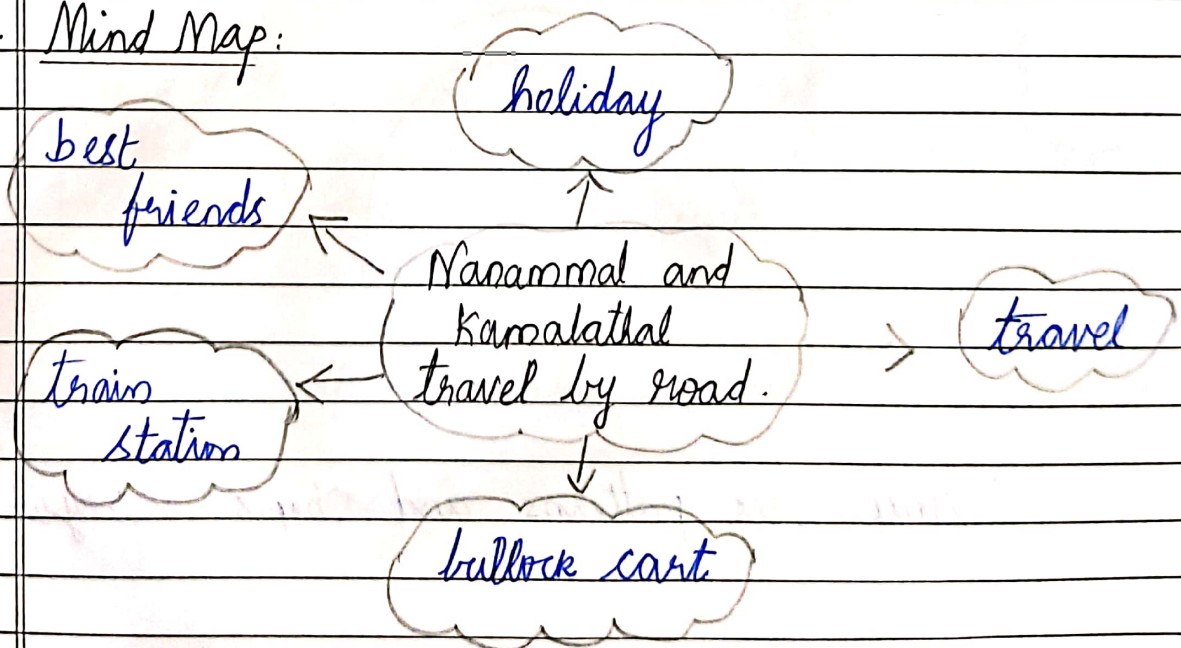 Mind Map:
holiday
best
friends
Nanammal and
Kamalathal
travel by road.
travel
train
station
bullock cart